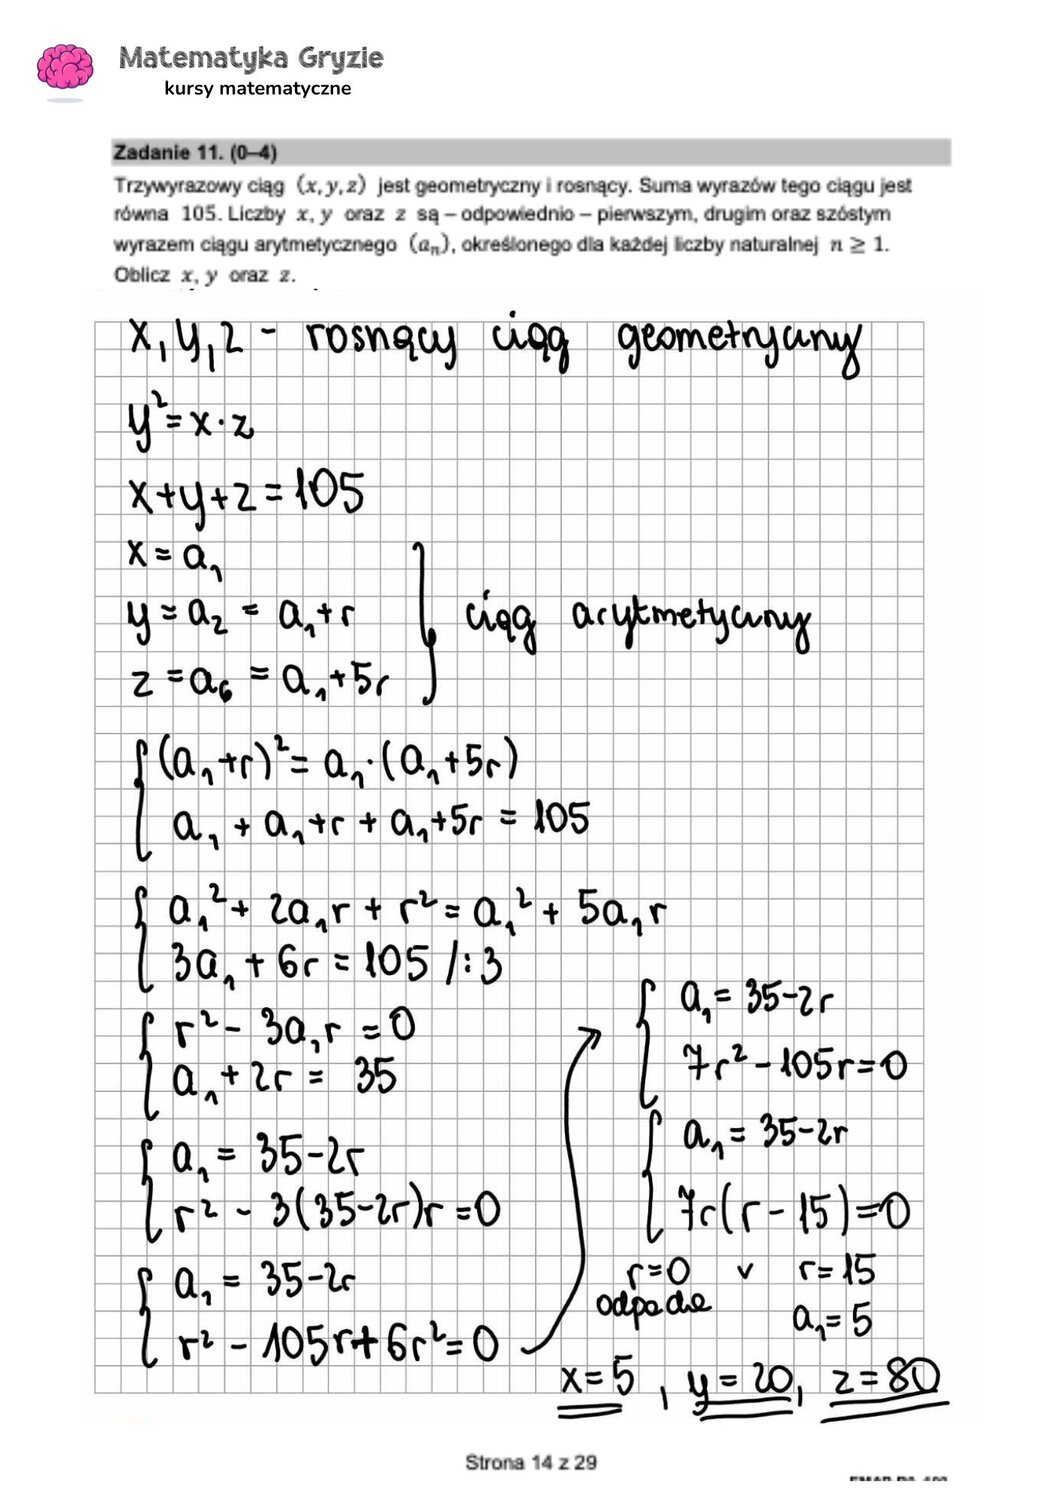 Matematyka Gryzie
kursy matematyczne
Zadanie 11. (0–4)
Trzywyrazowy ciąg (x, y, z) jest geometryczny i rosnący. Suma wyrazów tego ciągu jest
równa 105. Liczby x, y oraz z są – odpowiednio – pierwszym, drugim oraz szóstym
wyrazem ciągu arytmetycznego (aₙ), określonego dla każdej liczby naturalnej n ≥ 1.
Oblicz x, y oraz z.
x, y, z - rosnący ciąg geometryczny
y² = x · z
x + y + z = 105
x = a₁
y = a₂ = a₁ + r
ciąg arytmetyczny
z = a₆ = a₁ + 5r
(a₁ + r)² = a₁ · (a₁ + 5r)
a₁ + a₁ + r + a₁ + 5r = 105
a₁² + 2a₁r + r² = a₁² + 5a₁r
3a₁ + 6r = 105 /: 3
r² - 3a₁r = 0
a₁ + 2r = 35
a₁ = 35 - 2r
r² - 3(35 - 2r)r = 0
a₁ = 35 - 2r
r² - 105r + 6r² = 0
a₁ = 35 - 2r
7r² - 105r = 0
a₁ = 35 - 2r
7r(r - 15) = 0
r = 0 v r = 15
odpada
a₁ = 5
x = 5, y = 20, z = 80
Strona 14 z 29